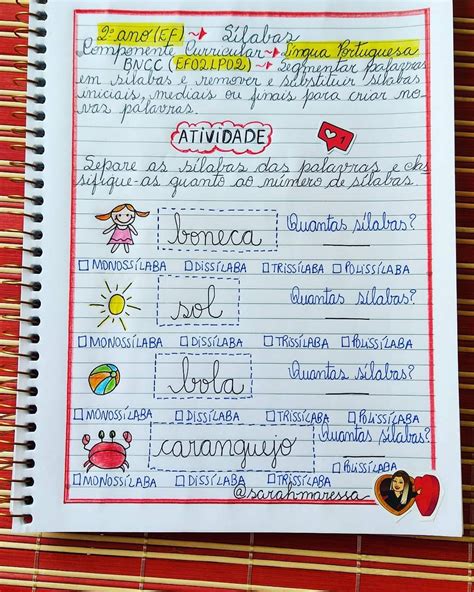 2º ano (EF) → Sílabas
Componente Curricular → Língua Portuguesa
BNCC (EF02LP02) → Segmentar palavras
em sílabas e remover e substituir sílabas
iniciais, mediais ou finais para criar no-
vas palavras.
ATIVIDADE
1
Separe as sílabas das palavras e clas
sifique-as quanto ao número de sílabas.
boneca Quantas sílabas?
☐ MONOSSÍLABA ☐ DISSÍLABA ☐ TRISSÍLABA ☐ POLISSÍLABA
sol Quantas sílabas?
☐ MONOSSÍLABA ☐ DISSÍLABA ☐ TRISSÍLABA ☐ POLISSÍLABA
bola Quantas sílabas?
☐ MONOSSÍLABA ☐ DISSÍLABA ☐ TRISSÍLABA ☐ POLISSÍLABA
caranguejo Quantas sílabas?
☐ MONOSSÍLABA ☐ DISSÍLABA ☐ TRISSÍLABA ☐ POLISSÍLABA
@sarah.maressa